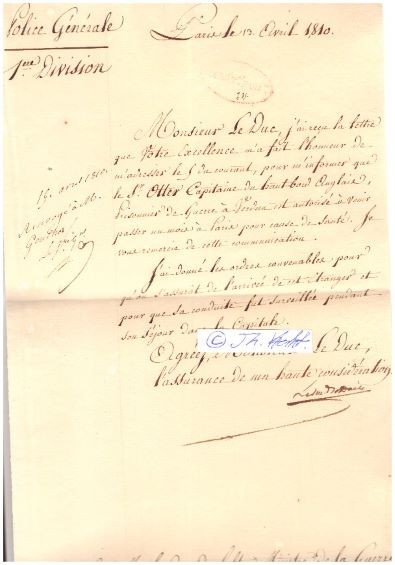 Police Générale
1ere Division
Paris le 13 Avril 1810.
Monsieur Le Duc, j'ai reçu la lettre
que Votre Excellence m'a fait l'honneur de
m'adresser le 5 du courant, pour m'informer que
le Sr. Otter Capitaine du haut bord Anglais,
prisonnier de Guerre à Verdun est autorisé à venir
passer un mois à Paris pour cause de Santé. Je
vous remercie de cette communication.
J'ai donné les ordres convenables pour
qu'on s'assurât de l'arrivée de cet étranger et
pour que sa conduite fut surveillée pendant
son séjour dans la Capitale.
Agréez, Le Duc,
l'assurance de ma haute considération
15. avril 1810.
Renvoyé à M.
© J.H.
Ministre de la Guerre